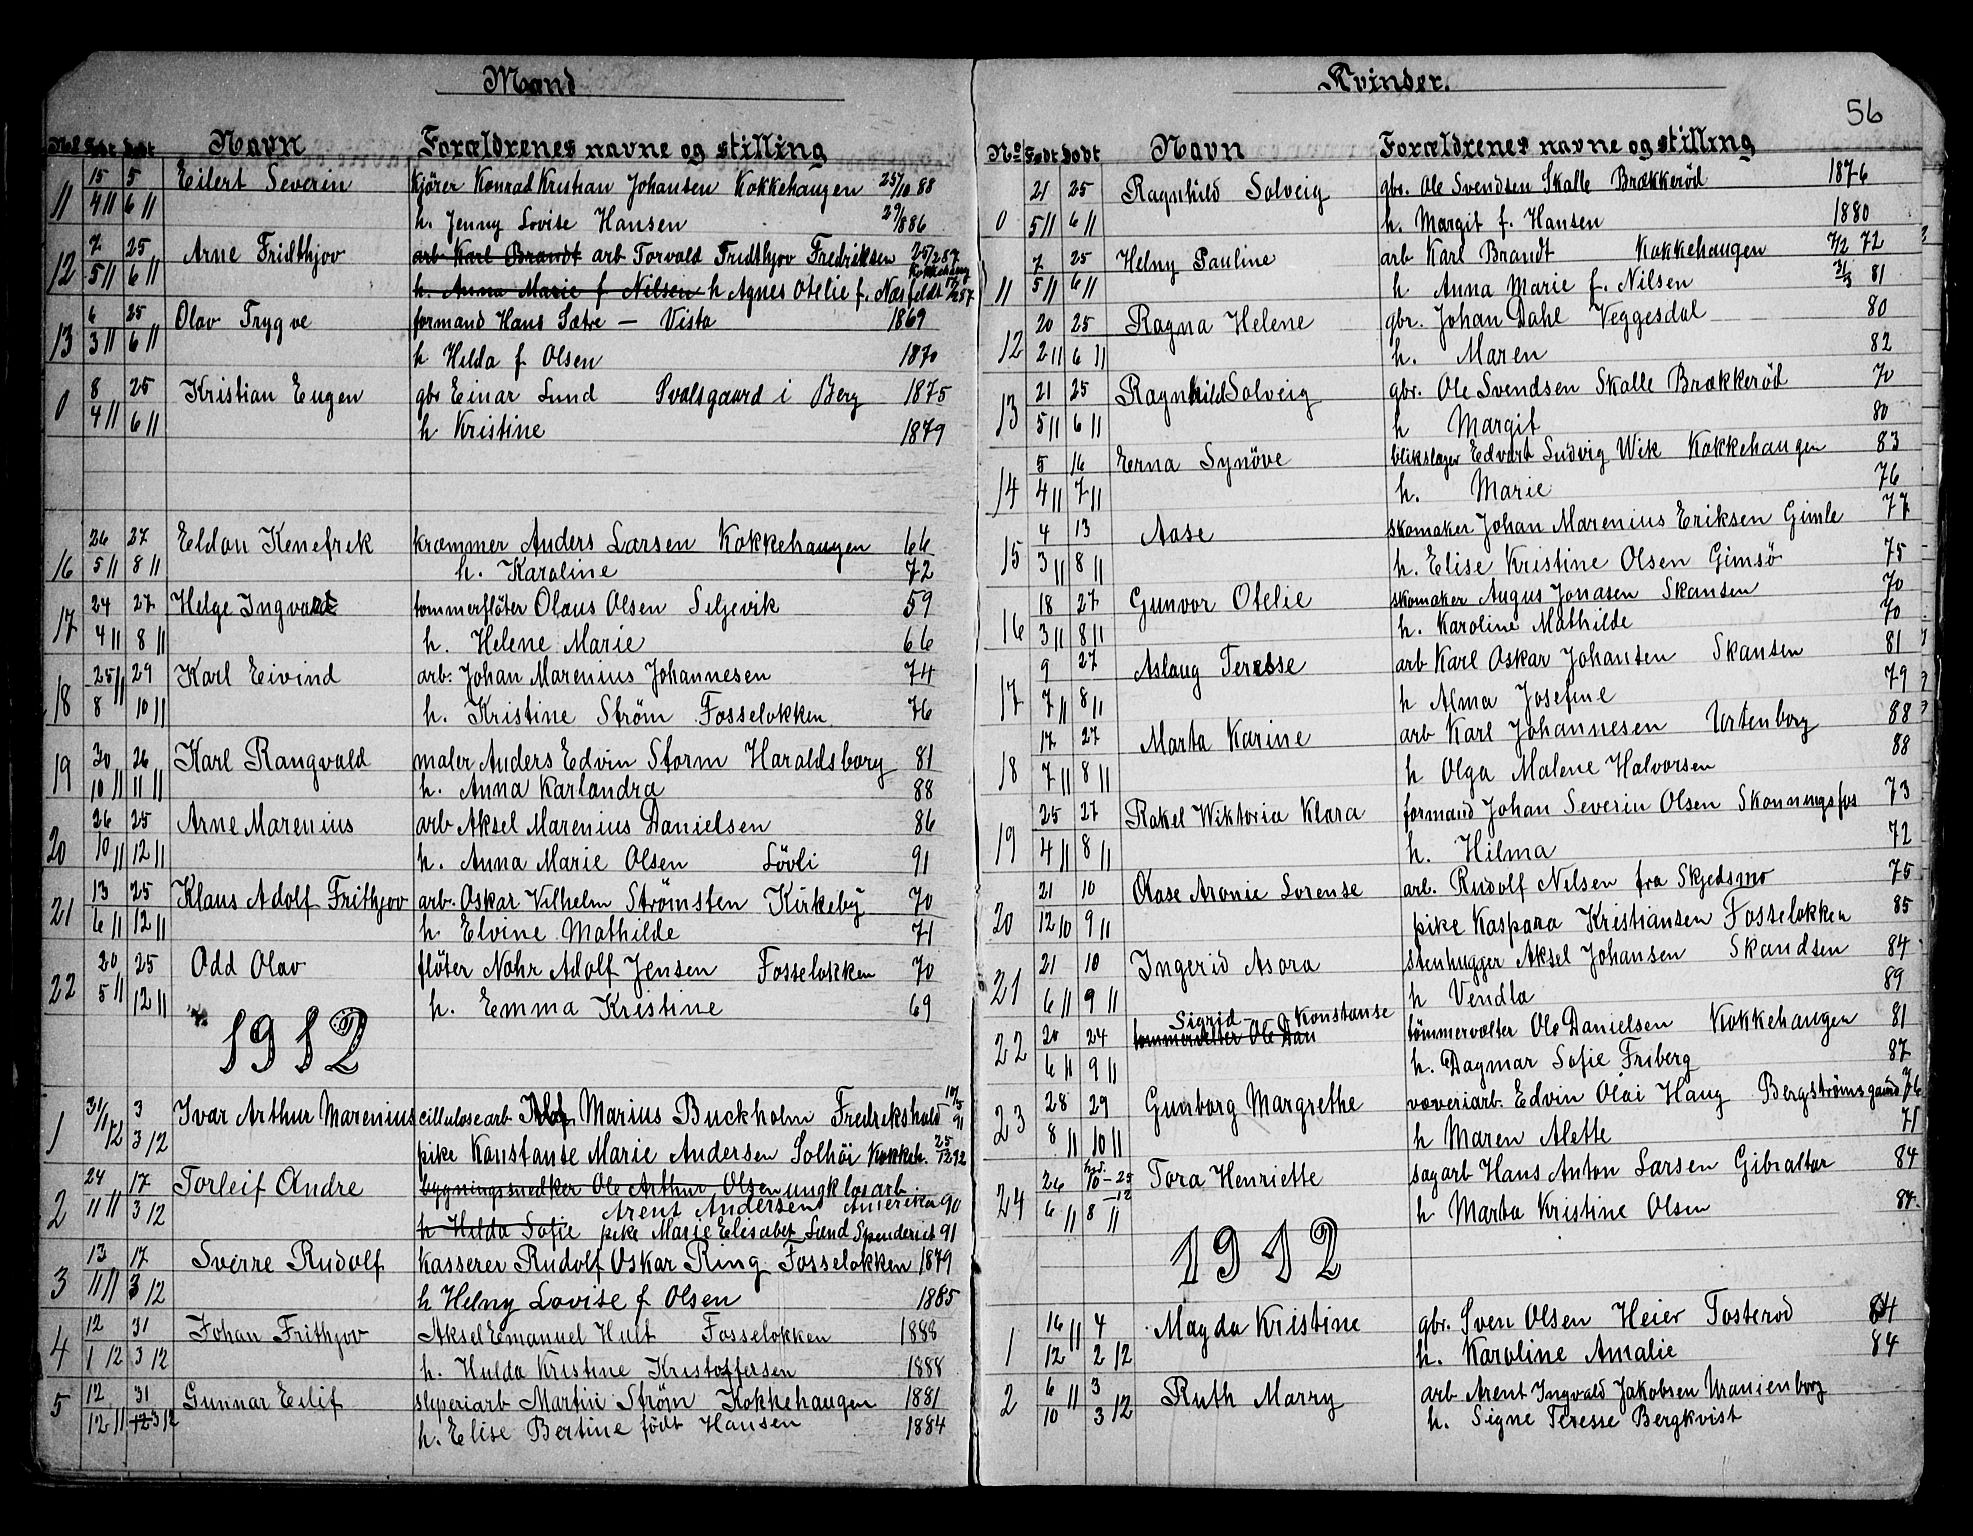 Mand
No Født Døbt Navn Forældrenes navne og stilling
11 15/4 11 5/6 11 Eilert Severin kjører Konrad Kristian Johansen Kokkehaugen 25/10 88
h. Jenny Lovise Hansen 29/ 886
12 7/5 11 25/6 11 Arne Fridthjov arb Karl Brandt arb Torvald Fridthjov Fredriksen 25/2 87
Kokkehaug
h. Anna Marie f Nilsen h Agnes Otelie f. Næsfeldt
13 6/3 11 25/6 11 Olav Trygve formand Hans Sætre — Vista 1869
h Hilda f Olsen 1870
0 8/4 11 25/6 11 Kristian Eugen gbr Einar Lund Svalsgaard i Berg 1875
h Kristine 1879
16 26/5 11 27/8 11 Eldon Kenefrek kræmmer Anders Larsen Kokkehaugen 66
h. Karoline 72
17 24/4 11 27/8 11 Helge Ingvart tømmerfløter Olaus Olsen Seljevik 59
h. Helene Marie 66
18 25/8 11 29/10 11 Karl Eivind arb. Johan Marenius Johannesen 74
h. Kristine Strøm Fosseløkken 76
19 30/10 11 26/11 11 Karl Rangvald maler Anders Edvin Storm Haraldsborg 81
h. Anna Karlandra 88
20 26/10 11 25/12 11 Arne Marenius arb Aksel Marenius Danielsen 86
h. Anna Marie Olsen Løvli 91
21 13/6 11 25/12 11 Klaus Adolf Frithjov arb. Oskar Vilhelm Strømsten Kirkeby 70
h. Elvine Mathilde 71
22 20/5 11 25/12 11 Odd Olav fløter Nohr Adolf Jensen Fosseløkken 70
h. Emma Kristine 69
1912
1 31/1 12 3/3 12 Ivar Arthur Marenius cillulosearb Marius Buckholm Fredrekshald 10/5 91
pike Konstanse Marie Andersen Solhøi Kokkeh. 25/12 92
2 24/11 11 17/3 12 Torleif Andre bygningssnedker Ole Arthur Olsen ungk løsarb
Arent Andersen Amerika 90
h Hilda Sofie pike Marie Elisabet Lund Spenderiet 91
3 13/11 11 17/3 12 Sverre Rudolf kasserer Rudolf Oskar Ring Fosseløkken 1879
h Helny Lovise f Olsen 1885
4 12/1 12 31/3 12 Johan Frithjov Aksel Emanuel Hult Fosseløkken 1888
h. Hulda Kristine Kristoffersen 1888
5 12/12 11 31/3 12 Gunnar Eilif sliperiarb Martin Strøm Kokkehaugen 1881
h. Elise Bertine født Hansen 1884
Kvinder.
56
No Født Døbt Navn Forældrenes navne og stilling
0 21/5 11 25/6 11 Ragnhild Solveig gbr. Ole Svendsen Skalle Brækkerød 1876
h. Margit f. Hansen 1880
11 7/5 11 25/6 11 Helny Pauline arb Karl Brandt Kokkehaugen 7/2 72
h Anna Marie f. Nilsen 31/3 81
12 20/2 11 25/6 11 Ragna Helene gbr. Johan Dahl Veggesdal 80
h. Maren 82
13 21/5 11 25/6 11 Ragnhild Solveig gbr. Ole Svendsen Skalle Brækkerød 70
h Margit 80
14 5/4 11 16/7 11 Erna Synøve blikslager Edvart Ludvig Wik Kokkehaugen 83
h. Marie 76
15 4/3 11 13/8 11 Aase skomaker Johan Marenius Eriksen Gimle 77
h. Elise Kristine Olsen Gimsø 75
16 18/3 11 27/8 11 Gunvor Otelie skomaker Augus Jonasen Skansen 70
h. Karoline Mathilde 70
17 9/7 11 27/8 11 Aslaug Teresse arb Karl Oskar Johansen Skansen 81
h Alma Josefine 79
18 17/7 11 27/8 11 Marta Karine arb Karl Johannesen Urtenborg 88
h Olga Malene Halvorsen 88
19 25/4 11 27/8 11 Rakel Wiktoria Klara formand Johan Severin Olsen Skonningsfos 73
h. Hilma 72
20 21/12 10 10/9 11 Aase Aronie Lorense arb. Rudolf Nilsen fra Skjedsmo 75
pike Kaspara Kristiansen Fosseløkken 85
21 21/6 11 10/9 11 Ingerid Asora stenhugger Aksel Johansen Skandsen 84
h Vendla 89
22 20/6 11 24/9 11 Sigrid Konstanse tømmervælter Ole Danielsen Kokkehaugen 81
tømmervælter Ole Dan
h. Dagmar Sofie Friberg 87
23 28/8 11 29/10 11 Gunborg Margrethe væveriarb. Edvin Olai Haug Bergstrømsgaard 76
h Maren Alette 71
24 26/6 11 10/8 11 — 25 — 12 Tora Henriette sagarb Hans Anton Larsen Gibraltar 84
h Marta Kristine Olsen 84.
1912
1 16/12 11 4/2 12 Magda Kristine gbr. Sven Olsen Heier Tosterød 84
h. Karoline Amalie 84
2 6/10 11 3/3 12 Ruth Marry arb Arent Ingvald Jakobsen Uranienborg
h. Signe Teresse Bergkvist